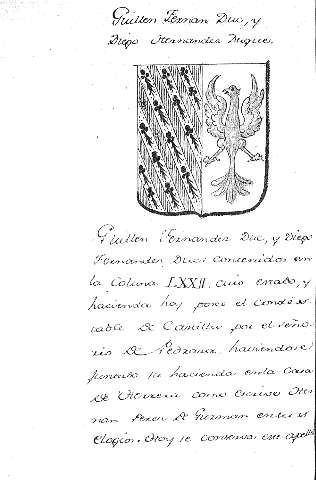 Guillen Fernan Duc, y
Diego Hernandez Duque.
Guillen Fernandez Duc, y Diego
Fernandez Duc: contenidos en
la Coluna LXXII, cuio estado, y
hacienda hoy posee el Condes-
table de Castilla por el seño-
rio de Pedraza, haviendose
juntado su hacienda en la Casa
de Herrera como escrive Her-
nan Perez de Guzman en sus
Elogios. Hoy se conserva este apelli